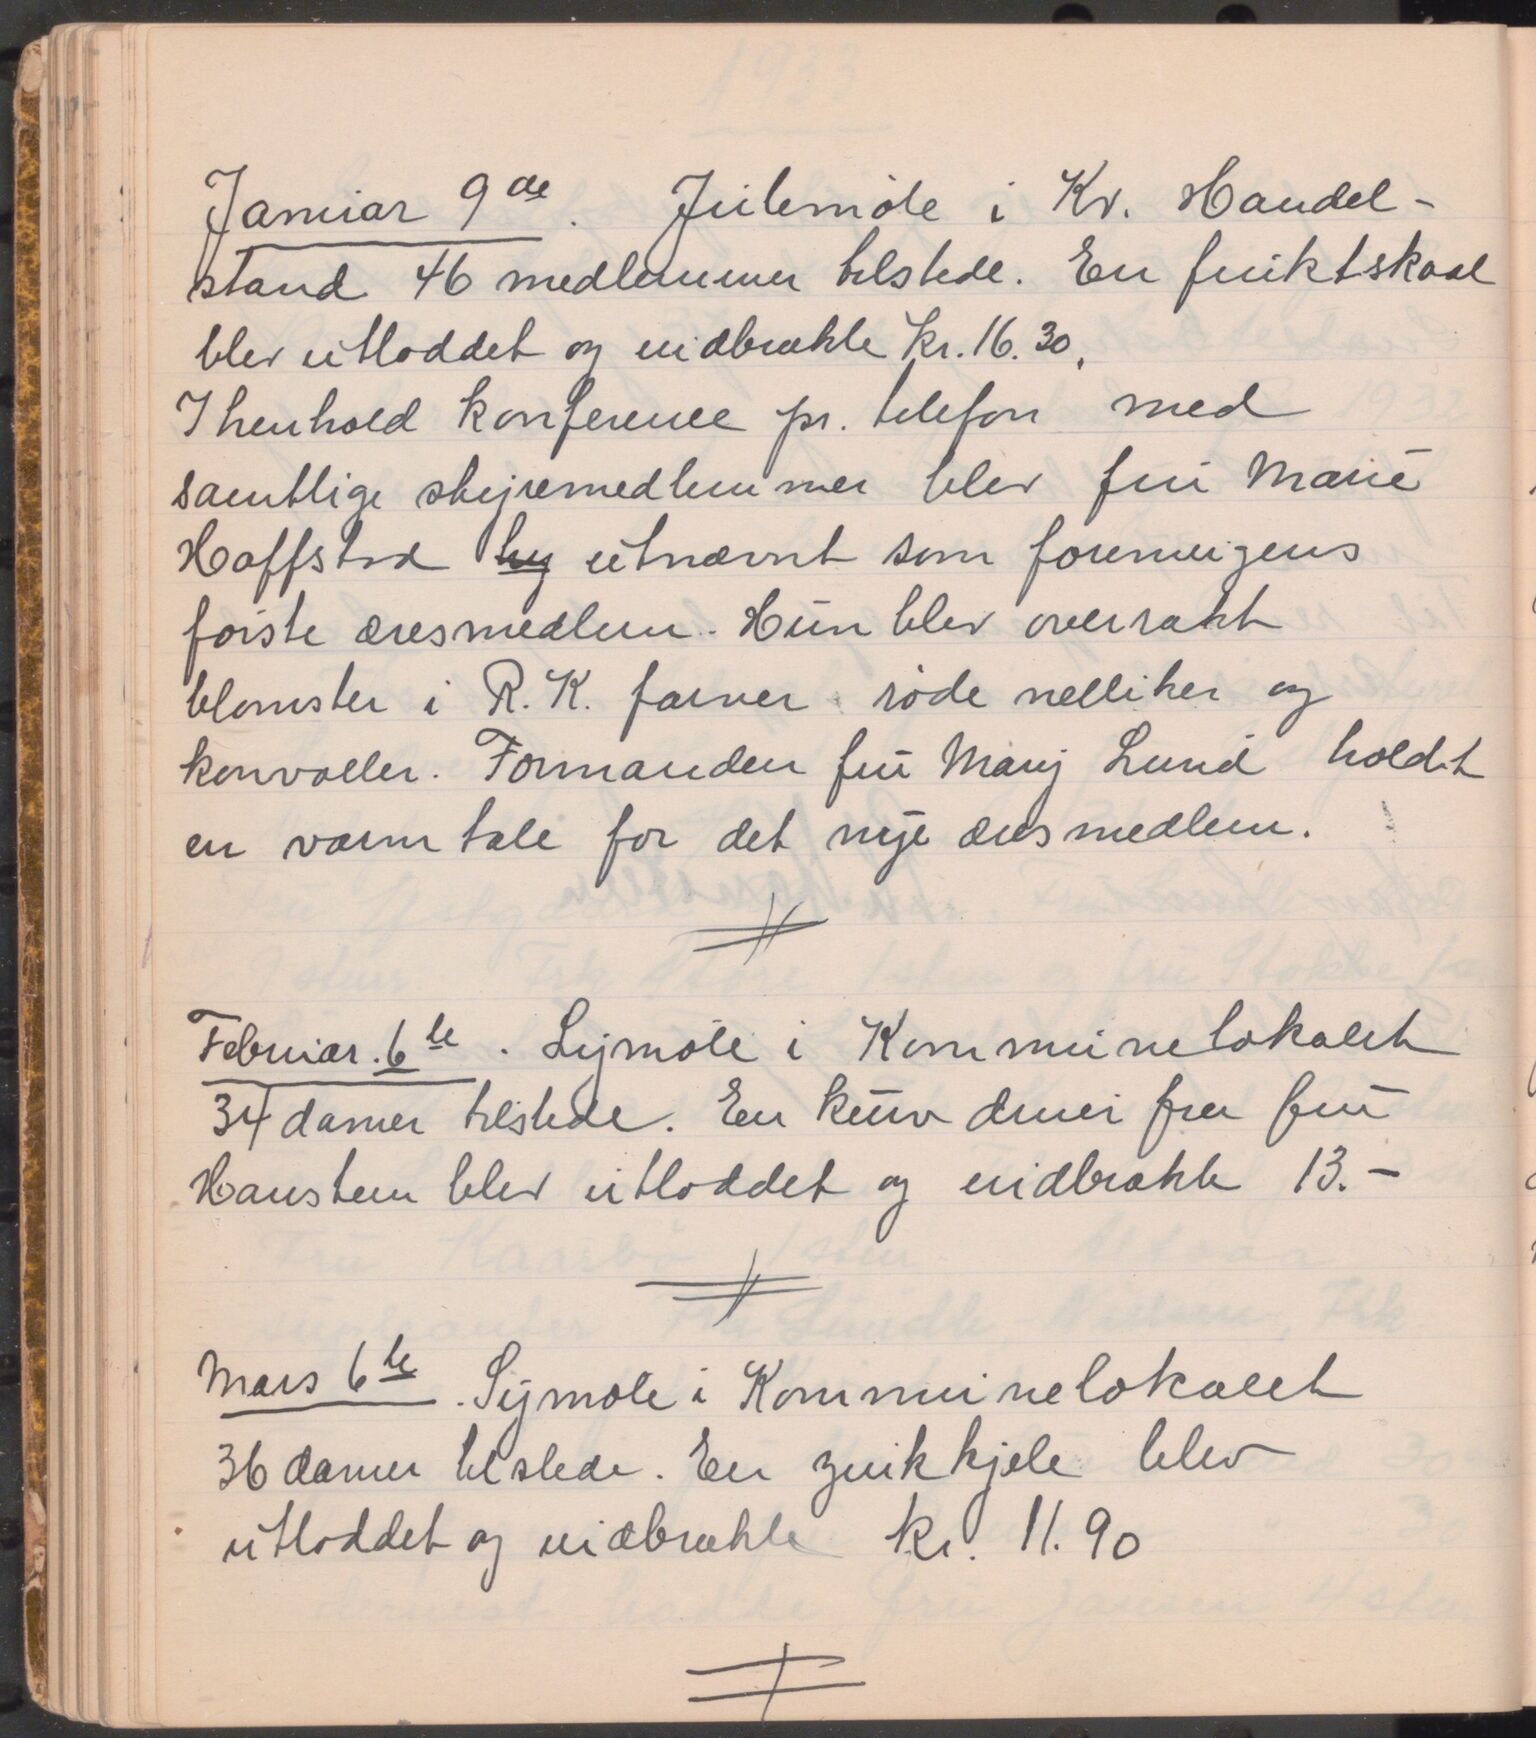 Januar 9de. Julemøte i Kr. Handel-
stand 46 medlemmer tilstede. En fruktskaal
blev utloddet og indbrakte kr. 16.30.
I henhold konference pr. telefon med
samtlige styremedlemmer blev fru Marie
Hoffstad utnævnt som foreningens
første æresmedlem. Hun blev overrakt
blomster i R.K. farver røde nelliker og
konvaller. Formanden fru Mary Lund holdt
en varm tale for det nye æresmedlem.
Februar. 6te. Symøte i Kommunelokalet
34 damer tilstede. En kurv druer fra fru
Hansteen blev utloddet og indbrakte 13.-
Mars 6te. Symøte i Kommunelokalet
36 damer tilstede. En zinkkjele blev
utloddet og indbrakte kr. 11.90